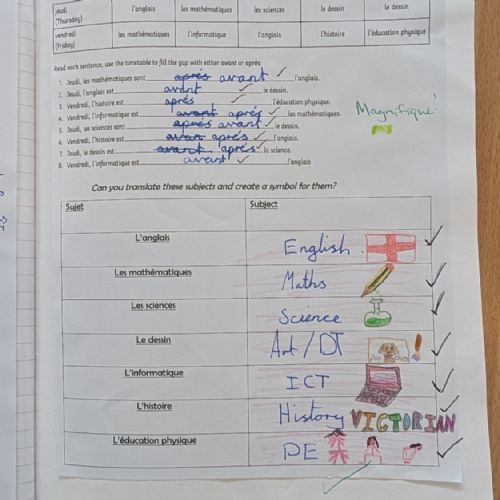 jeudi l'anglais les mathématiques les sciences le dessin le dessin
(Thursday)
vendredi les mathématiques l'informatique l'anglais l'histoire l'éducation physique
(Friday)
Read each sentence, use the timetable to fill the gap with either avant or après:
1. Jeudi, les mathématiques sont aprés avant l'anglais.
2. Jeudi, l'anglais est avant le dessin.
3. Vendredi, l'histoire est aprés l'éducation physique.
4. Vendredi, l'informatique est avant aprés les mathématiques.
5. Jeudi, les sciences sont aprés avant le dessin.
6. Vendredi, l'histoire est avan aprés l'anglais.
7. Jeudi, le dessin est avant aprés la science.
8. Vendredi, l'informatique est avant l'anglais
Magnifique!
Can you translate these subjects and create a symbol for them?
Sujet Subject
L'anglais English
Les mathématiques Maths
Les sciences Science
Le dessin Art/DT
L'informatique ICT
L'histoire History VICTORIAN
L'éducation physique PE